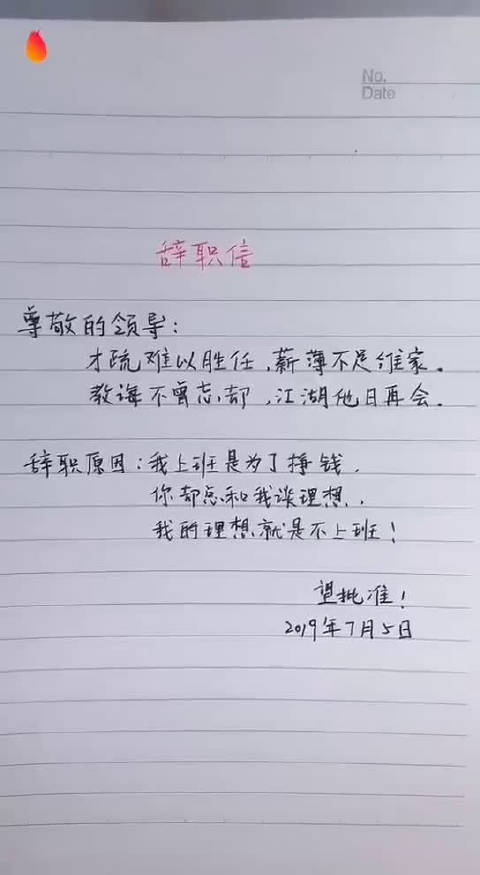 No.
Date
辞职信
尊敬的领导：
才疏难以胜任，薪薄不足维家。
教诲不曾忘却，江湖他日再会。
辞职原因：我上班是为了挣钱，
你却总和我谈理想，
我的理想就是不上班！
望批准！
2019年7月5日